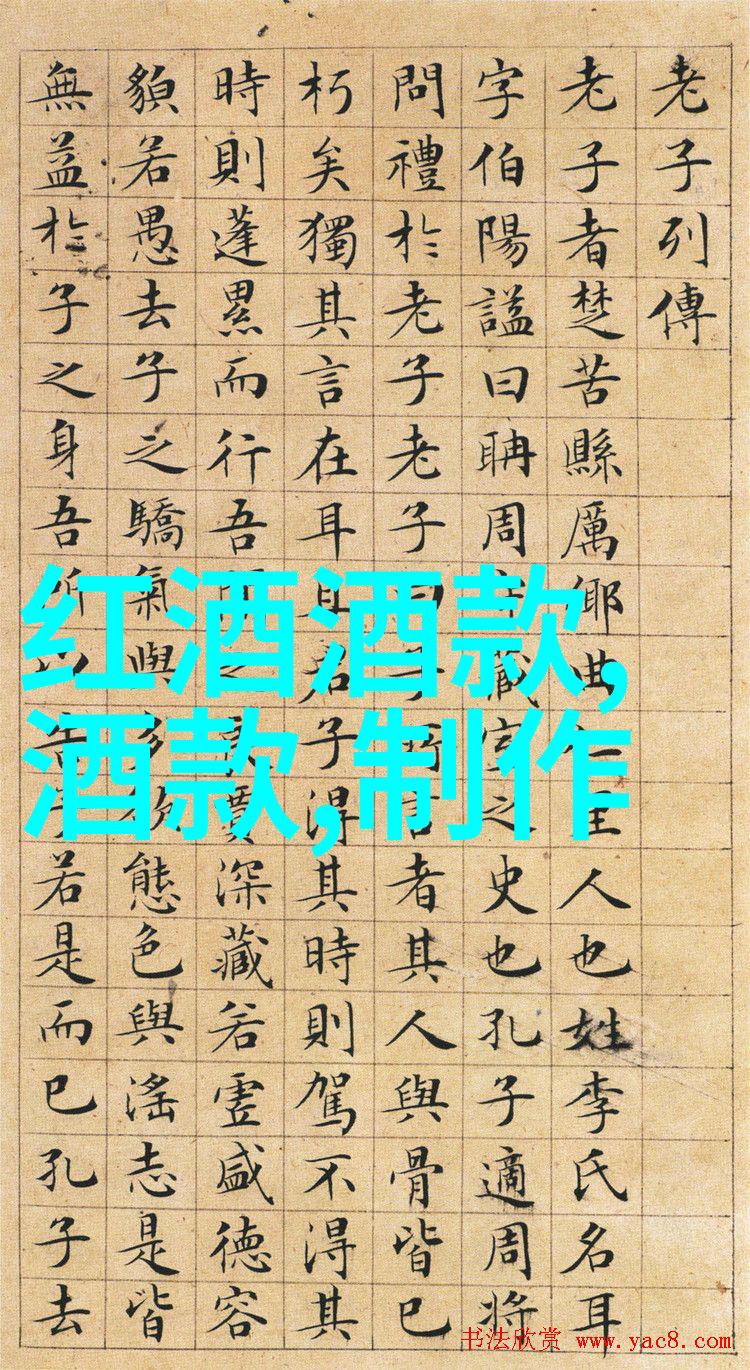 老子列傳
老子者楚苦縣厲鄉曲里人也姓李氏名耳
字伯陽謚曰聃周藏室之史也孔子適周將
問禮於老子老子曰子言者其人與骨皆已
朽矣獨其言在耳且君子得其時則駕不得其
時則蓬累而行吾賈深藏若虛盛德容
貌若愚去子之驕氣與多態色與淫志是皆
無益於子之身吾所告若是而已孔子去
红酒酒款,
酒款,制作
书法欣赏 www.yac8.com